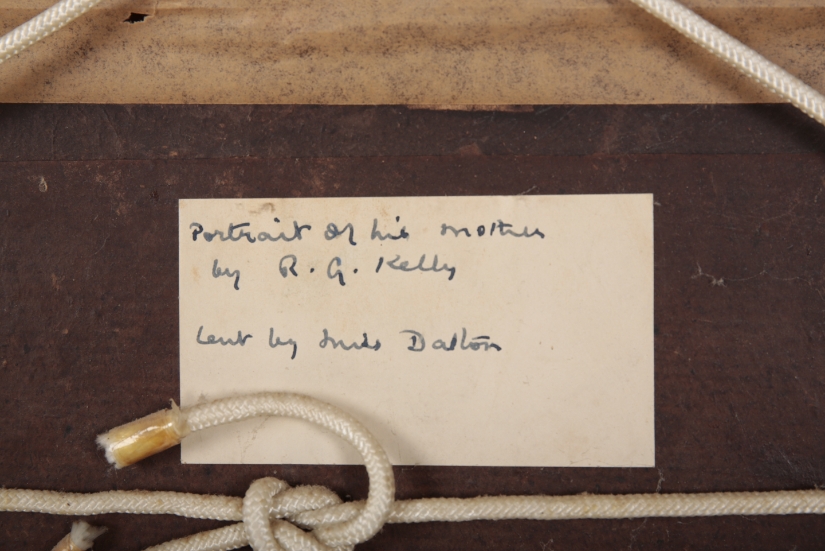 Portrait of his mother
by R. G. Kelly
Lent by Miss Dalton